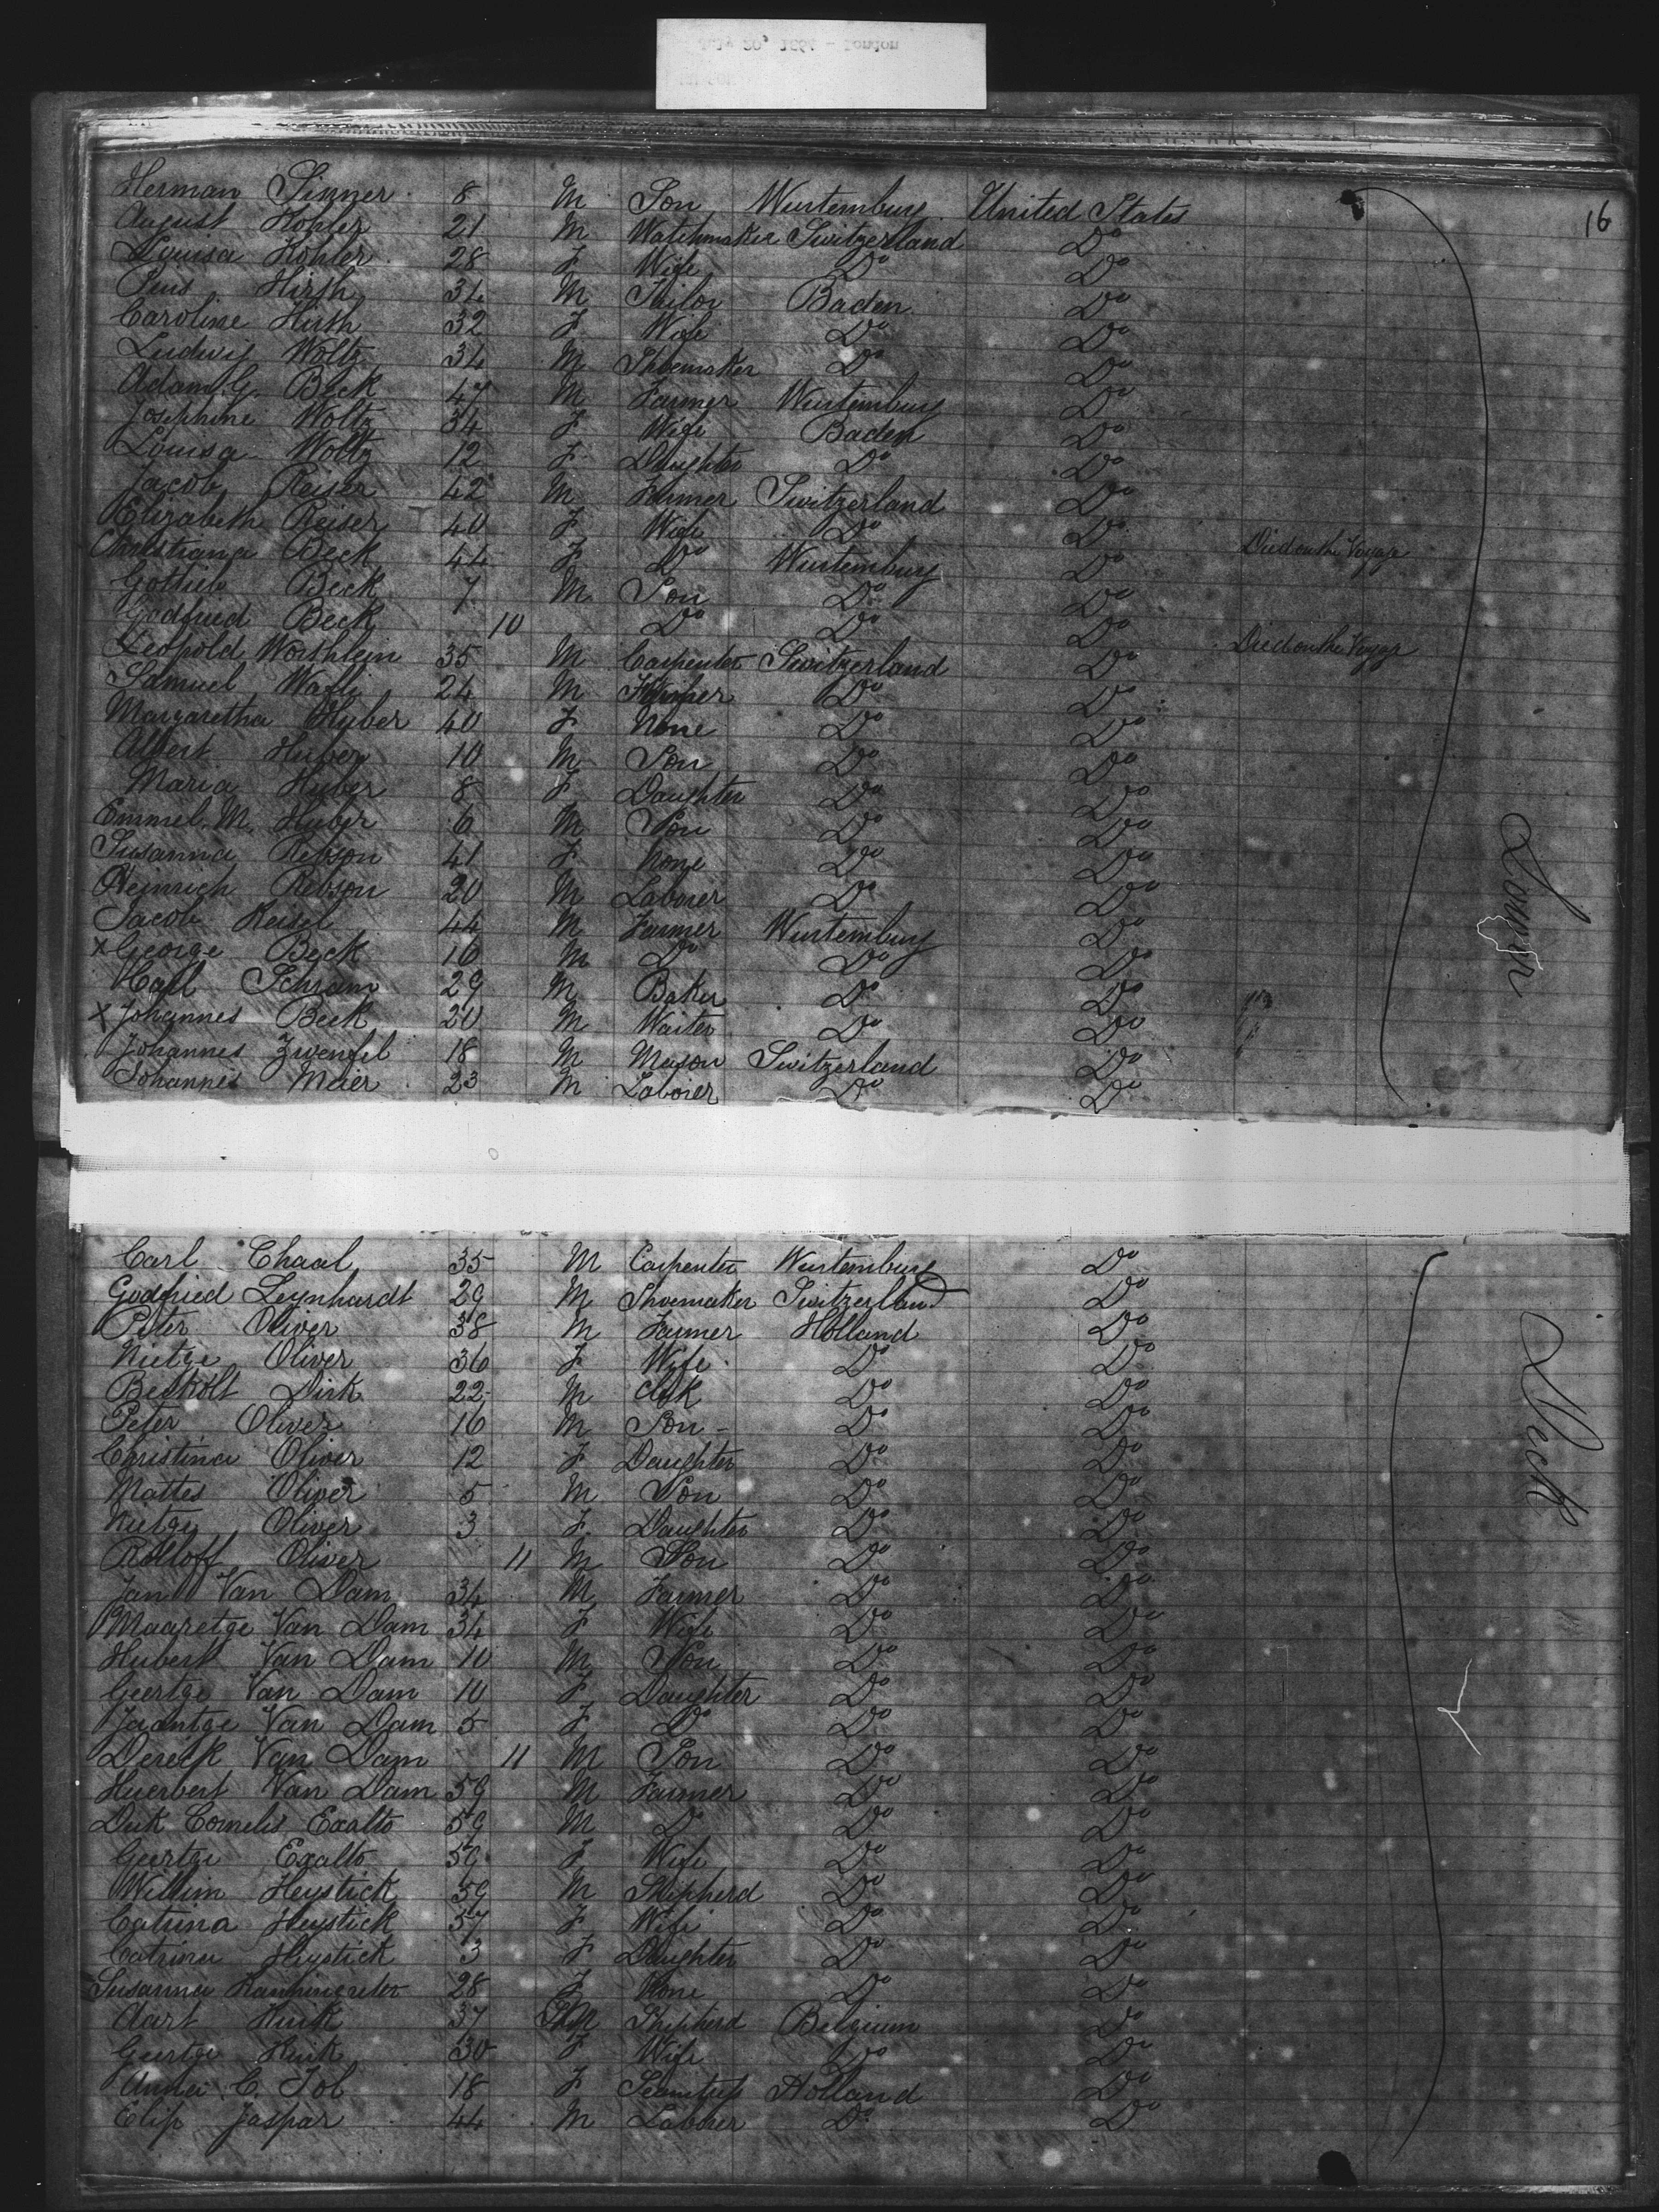 July 20, 1864 - London
16
Herman Sinner 8 M Son Wurtemburg United States
August Kohler 21 M Watchmaker Switzerland Do
Louisa Kohler 28 F Wife Do Do
Pius Hirsh 34 M Tailor Baden Do
Caroline Hirsh 32 F Wife Do Do
Ludwig Woltz 34 M Shoemaker Do Do
Adam G. Beck 47 M Farmer Wurtemburg Do
Josephine Woltz 34 F Wife Baden Do
Louisa Woltz 12 F Daughter Do Do
Jacob Reiser 42 M Farmer Switzerland Do
Elizabeth Reiser 40 F Wife Do Do
Christiana Beck 44 F Do Wurtemburg Do Died on the Voyage
Gottlieb Beck 7 M Son Do Do
Godfried Beck 10 Do Do Do
Leopold Worshlein 35 M Carpenter Switzerland Do Died on the Voyage
Samuel Wafli 24 M Do Do
Margaretha Huber 40 F None Do Do
Albert Huber 10 M Son Do Do
Maria Huber 8 F Daughter Do Do
Emmel. M. Huber 6 M Son Do Do
Susanna Rebson 41 F None Do Do
Heinrich Rebson 20 M Laborer Do Do
Jacob Reisel 44 M Farmer Wurtemburg Do
x George Beck 16 M Do Do Do
Karl Schram 29 M Baker Do Do
x Johannes Beck 20 M Waiter Do Do
Johannes Zwenfel 18 M Mason Switzerland Do
Johannes Maier 23 M Laborer Do Do
Lower
Carl Chaal 35 M Carpenter Wurtemburg Do
Godfried Leynhardt 29 M Shoemaker Switzerland Do
Peter Oliver 38 M Farmer Holland Do
Nietge Oliver 36 F Wife Do Do
Berkolt Dirk 22 M Clerk Do Do
Peter Oliver 16 M Son Do Do
Christina Oliver 12 F Daughter Do Do
Mattes Oliver 5 M Son Do Do
Nietge Oliver 3 F Daughter Do Do
Rolloff Oliver 11 M Son Do Do
Jan Van Dam 34 M Farmer Do Do
Maaretge Van Dam 34 F Wife Do Do
Hubert Van Dam 10 M Son Do Do
Geertge Van Dam 10 F Daughter Do Do
Jaantge Van Dam 5 F Do Do Do
Dereck Van Dam 11 M Son Do Do
Huerbert Van Dam 59 M Farmer Do Do
Dirk Cornelis Exalto 59 M Do Do Do
Geertge Exalto 59 F Wife Do Do
Willim Heystick 59 M Shepherd Do Do
Catrina Heystick 57 F Wife Do Do
Catrina Heystick 3 F Daughter Do Do
Susanna 28 F None Do Do
Aart Huik 37 M Shepherd Belgium Do
Geertge Huik 30 F Wife Do Do
Anna C. Tol 18 F Seamstress Holland Do
Elip Jaspar 44 M Laborer Do Do
Deck